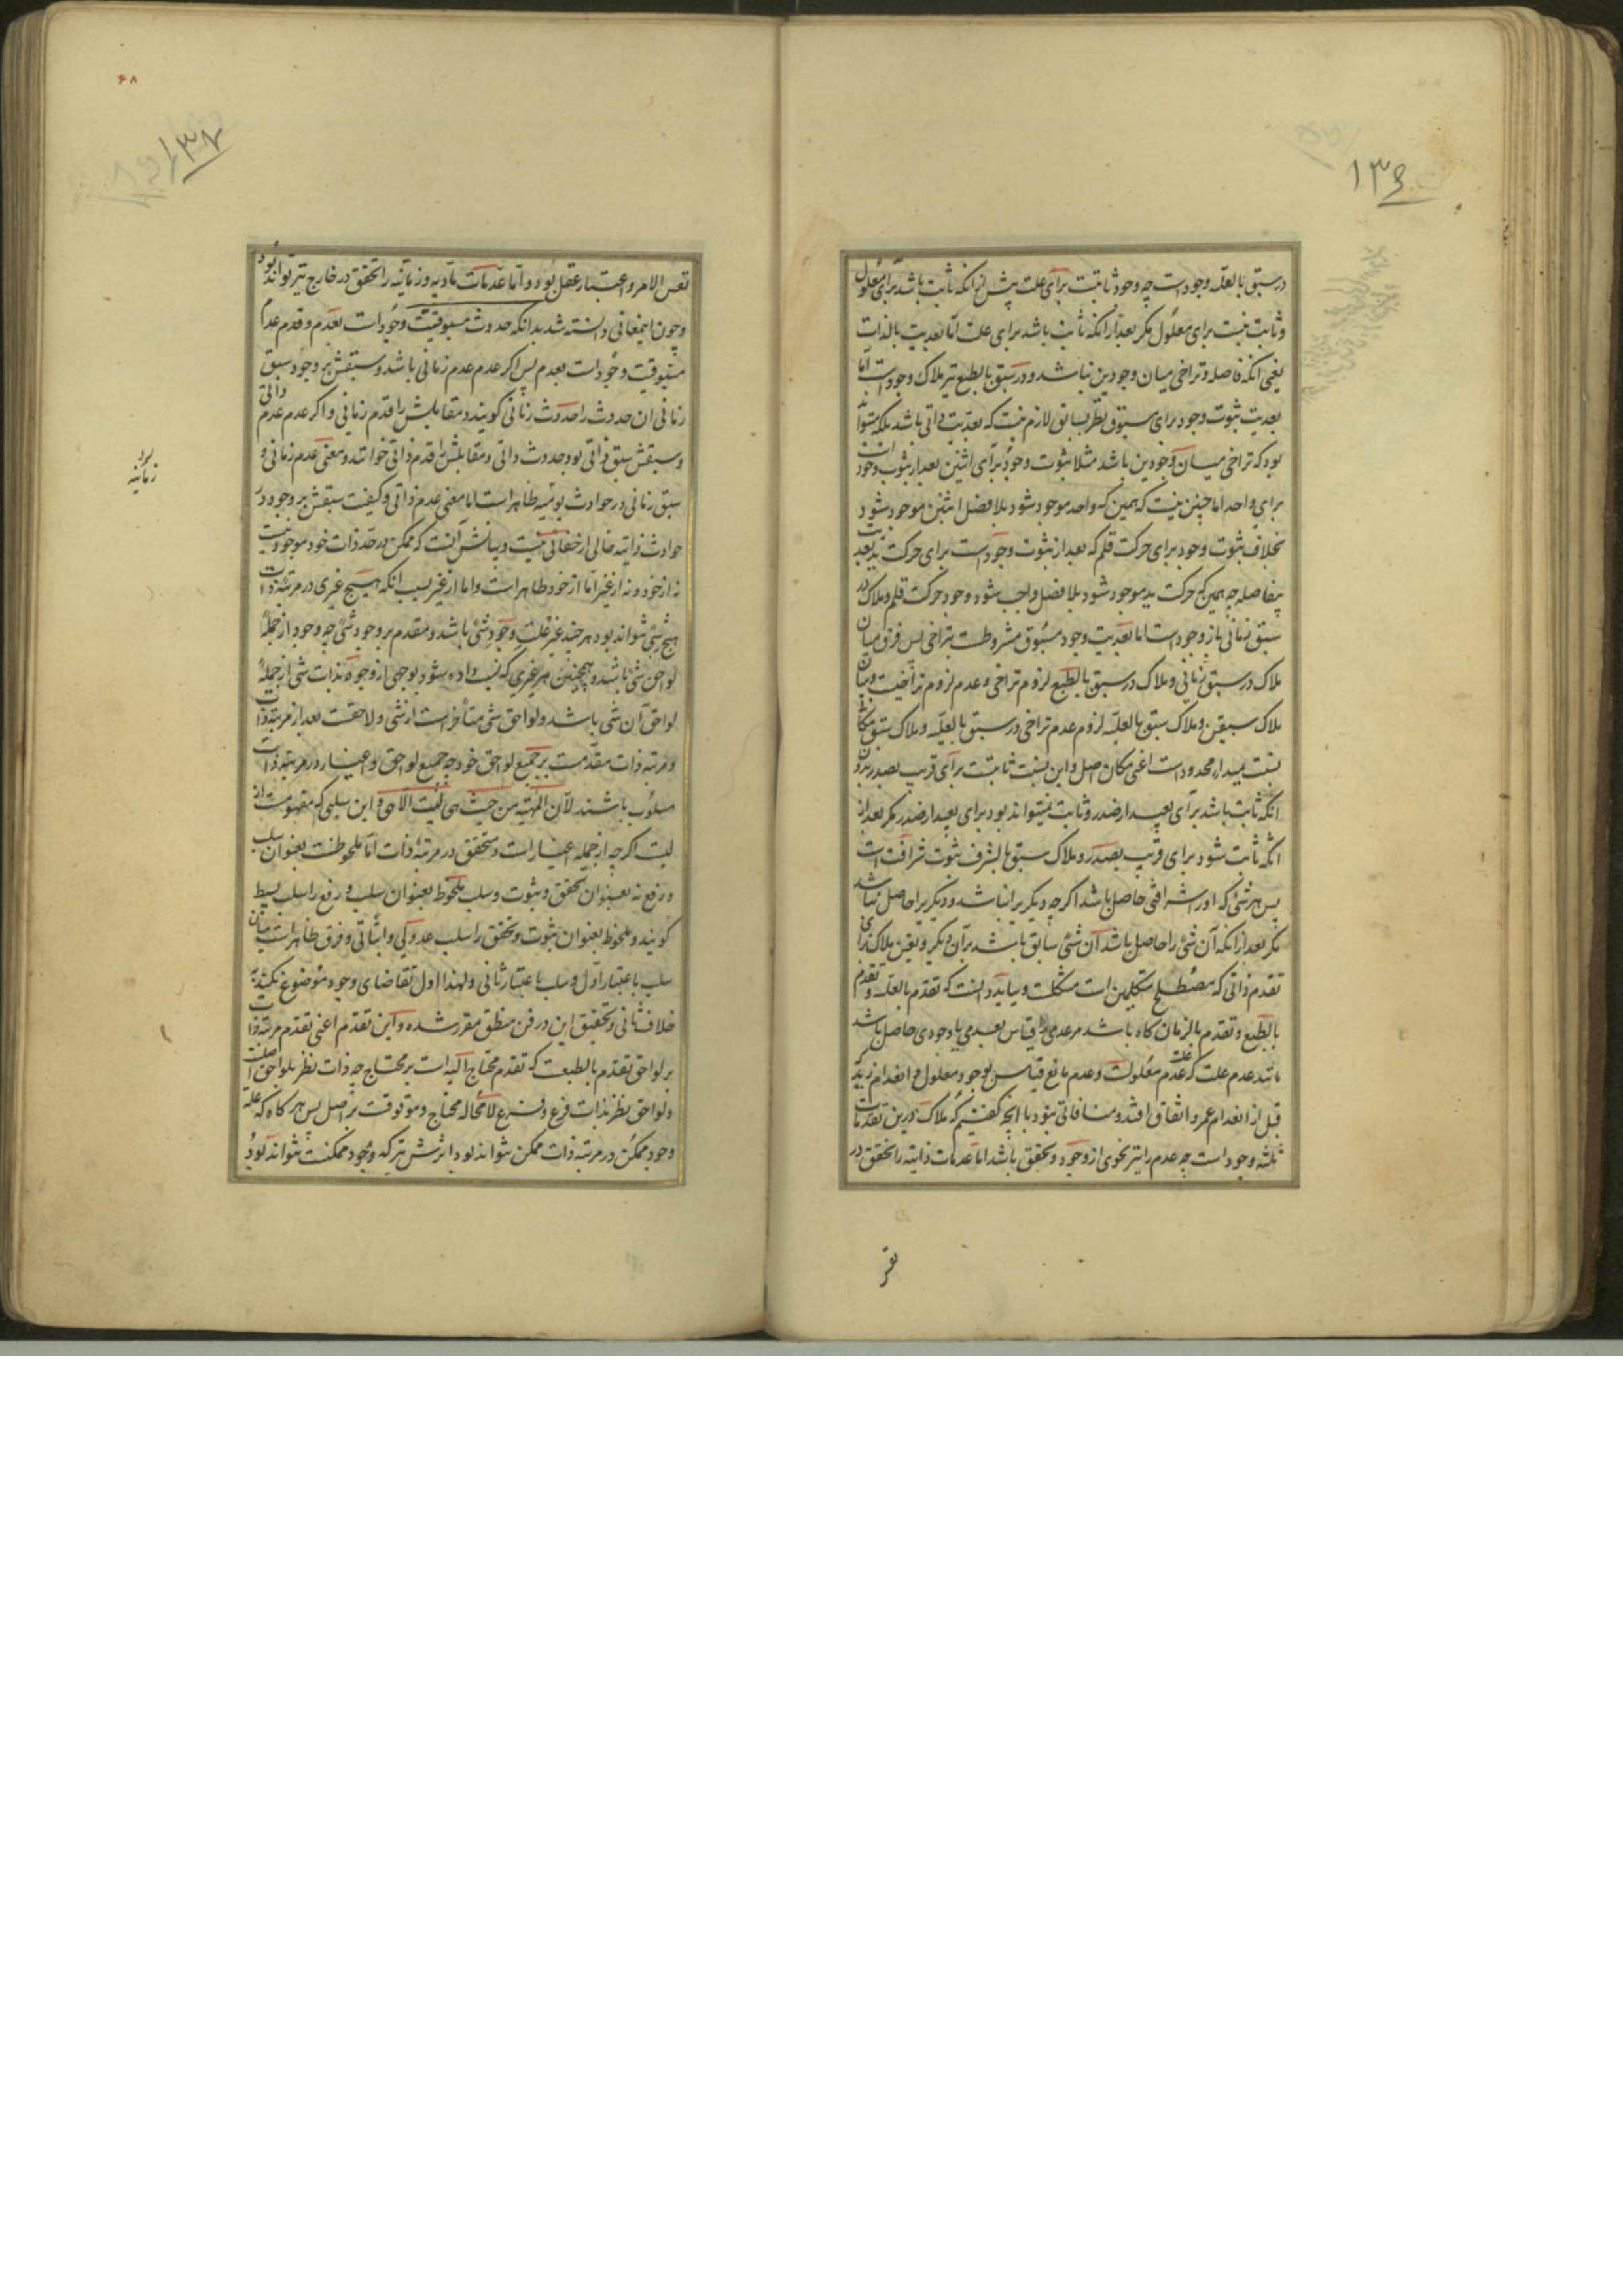 ۱۳۶
در سبق بالعله وجود است چه وجود ثابتست برای علت پیش از انکه ثابت باشد برای معلول
و ثابت نیست برای معلول مکر بعد از انکه ثابت باشد برای علت اما بعدیت بالذات
یعنی انکه فاصله و تراخی میان وجودین نباشد و در سبق بالطبع نیز ملاک وجود است اما
بعدیت ثبوت وجود برای مسبوق نظر بسابق لازم نیست که بعدیت ذاتی باشد بلکه میتواند
بود که تراخی میان وجودین باشد مثلا ثبوت وجود برای اثنین بعد از ثبوت وجود است
برای واحد اما چنین نیست که همین که واحد موجود شود بلا فصل اثنین موجود شود
بخلاف ثبوت وجود برای حرکت قلم که بعد از ثبوت وجود است برای حرکت ید بعدیت
بیفاصله چه همین که حرکت ید موجود شود بلا فصل واجب شود وجود حرکت قلم و ملاک در
سبق زمانی باز وجود است اما بعدیت وجود مسبوق مشروطست بتراخی پس فرق میان
ملاک در سبق زمانی و ملاک در سبق بالطبع لزوم تراخی و عدم لزوم تراخیست و میان
ملاک سبقین و ملاک سبق بالعله لزوم عدم تراخی در سبق بالعله و ملاک سبق مکانی
نسبت بمبداء محدود است اعنی مکان اصل و این نسبت ثابتست برای قریب بصدر بدون
انکه ثابت باشد برای بعید از صدر و ثابت نمیتواند بود برای بعید از صدر مکر بعد از
انکه ثابت شود برای قریب بصدر و ملاک سبق بالشرف ثبوت شرافت است
پس هر شئ که او را شرافتی حاصل باشد اکر چه دیکریرا نباشد و دیکریرا حاصل نباشد
مکر بعد از انکه آن شئ را حاصل باشد آن شئ سابق باشد بر آن دیکر و یقین ملاک برای
تقدم ذاتی که مصطلح متکلمین است مشکلست و بباید دانست که تقدم بالعله و تقدم
بالطبع و تقدم بالزمان کاه باشد مر عدمی را قیاس بعدمی یا وجودی حاصل باشد
مانند عدم علت که علت عدم معلولست و عدم مانع قیاس بوجود معلول و انعدام زید که
قبل از انعدام عمرو اتفاق افتد و منافاتی نبود با انچه کفتیم که ملاک درین تقدمات
ثلثه وجود است چه عدم را نیز نحوی از وجود و تحقق باشد اما عدمات ذاتیه را تحقق در
نفس
۶۸
۱۳۷
نفس الامر و اعتبار عقل بود و اما عدمات مادیه و زمانیه را تحقق در خارج نیز تواند بود
و چون اینمعانی دانسته شد بدانکه حدوث مسبوقیت وجود است بعدم و قدم عدم
مسبوقیت وجود است بعدم پس اکر عدم عدم زمانی باشد و سبقش بر وجود سبق
زمانی ان حدوث را حدوث زمانی کویند و مقابلش را قدم زمانی و اکر عدم عدم ذاتی
و سبقش سبق ذاتی بود حدوث ذاتی و مقابلش را قدم ذاتی خوانند و معنی عدم زمانی و
سبق زمانی در حوادث یومیه ظاهر است اما معنی عدم ذاتی و کیفیت سبقش بر وجود در
حوادث ذاتیه خالی از خفائی نیست و بیانش آنست که ممکن در حد ذات خود موجود نیست
نه از خود و نه از غیر اما از خود ظاهر است و اما از غیر بسبب انکه هیچ غیری در مرتبه ذات
هیچ شئ نتواند بود هر چند غیر علت وجود شئ باشد و مقدم بر وجود شئ چه وجود از جمله
لواحق شئ باشد و همچنین هر چیزی که نسبت داده شود بوجهی از وجوه بذات شئ از جمله
لواحق آن شئ باشد و لواحق شئ متأخر است از شئ و لاحقست بعد از مرتبه ذات
و مرتبه ذات مقدمست بر جمیع لواحق خود چه جمیع لواحق و اغیار در مرتبه ذات
مسلوب باشند لان المهیه من حیث هی لیست الا هی و این سلبی که مفهومست از
لیست اکر چه از جمله اغیار است و متحقق در مرتبه ذات اما ملحوظست بعنوان سلب
و رفع نه بعنوان تحقق و ثبوت و سلب ملحوظ بعنوان سلب و رفع را سلب بسیط
کویند و ملحوظ بعنوان ثبوت و تحقق را سلب عدولی و اثباتی و فرق ظاهر است میان
سلب باعتبار اول و سلب باعتبار ثانی و لهذا اول تقاضای وجود موضوع نکند
خلاف ثانی و تحقیق این در فن منطق مقرر شده و این تقدم اعنی تقدم مرتبه ذات
بر لواحق تقدم بالطبعست که تقدم محتاج الیه است بر محتاج چه ذات نظر بلواحق اصلست
و لواحق نظر بذات فرع و فرع لا محاله محتاج و موقوفست بر اصل پس هر کاه که علت
وجود ممکن در مرتبه ذات ممکن نتواند بود اثرش نیز که وجود ممکنست نتواند بود
زمانیه